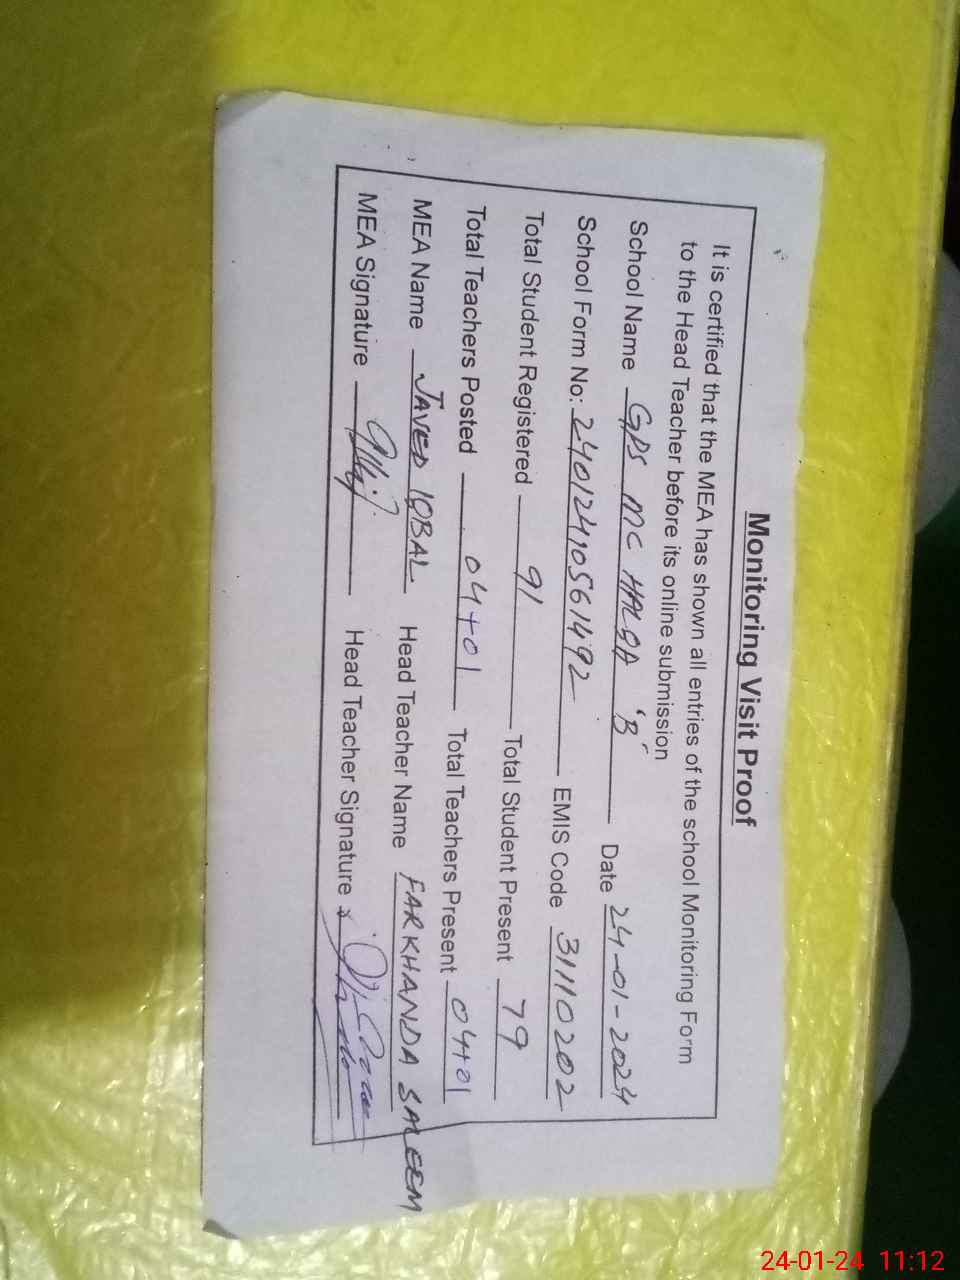 Monitoring Visit Proof
It is certified that the MEA has shown all entries of the school Monitoring Form
to the Head Teacher before its online submission
School Name GPS MC HALQA 'B' Date 24-01-2024
School Form No: 24012410561492 EMIS Code 31110202
Total Student Registered 91 Total Student Present 79
Total Teachers Posted 04+01 Total Teachers Present 04+01
MEA Name JAVED IQBAL Head Teacher Name FARKHANDA SALEEM
MEA Signature Head Teacher Signature
24-01-24 11:12